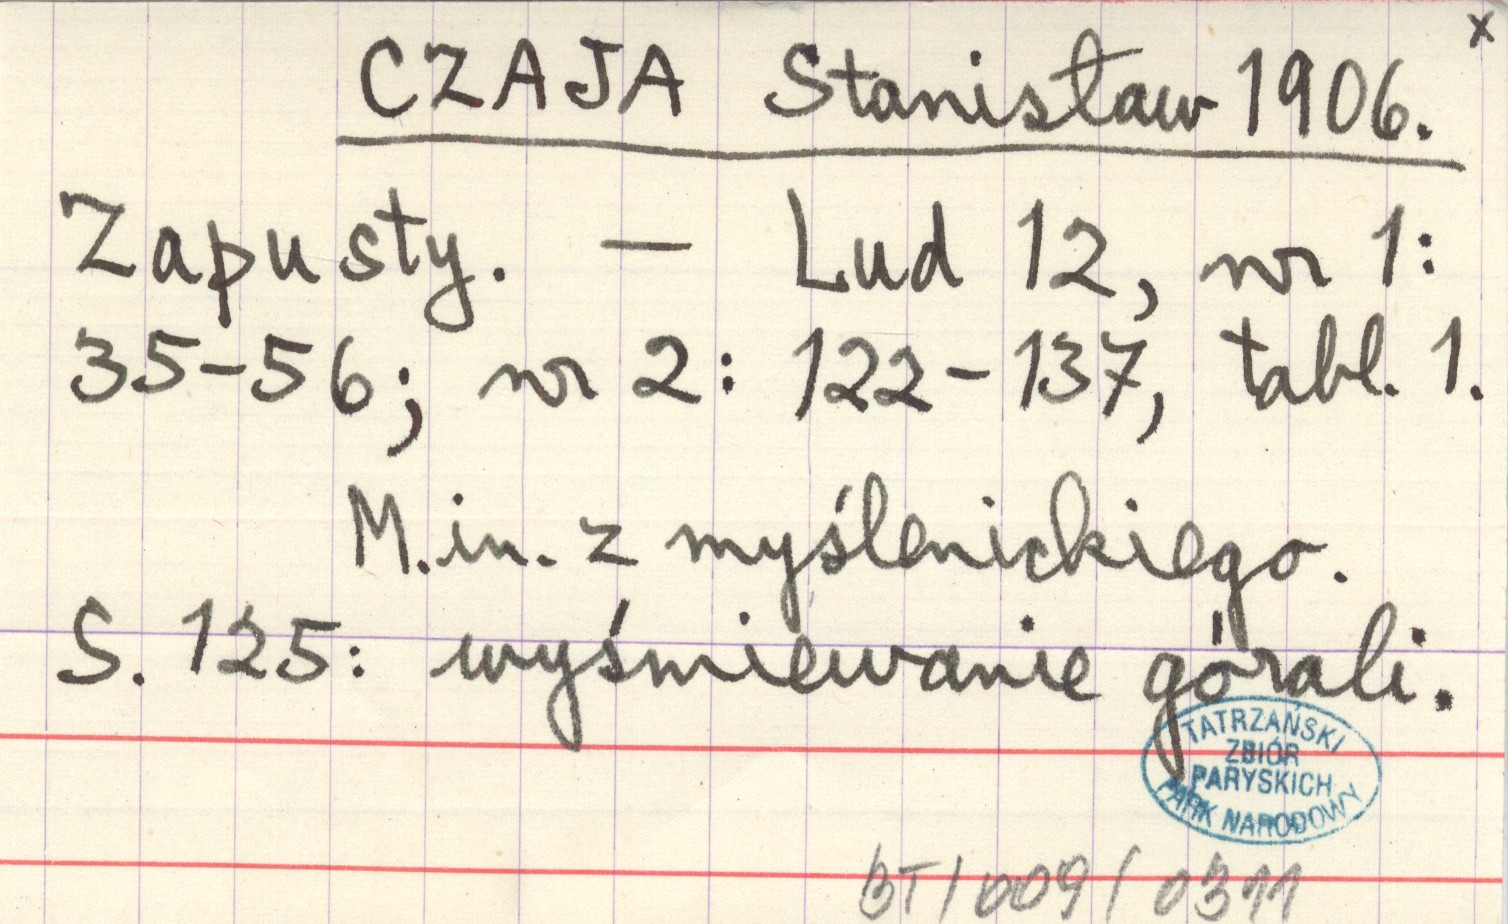 x
CZAJA Stanisław 1906.
Zapusty. — Lud 12, nr 1:
35-56; nr 2: 122-137, tabl. 1.
M.in. z myślenickiego.
S. 125: wyśmiewanie górali.
TATRZAŃSKI
ZBIÓR
PARYSKICH
PARK NARODOWY
BT/009/0311